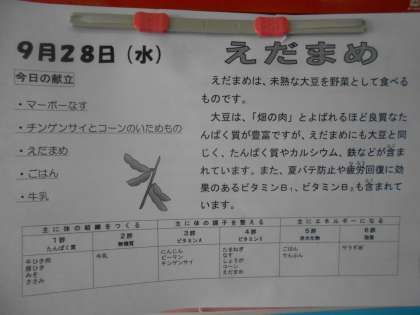 9月28日（水）
えだまめ
今日の献立
・マーボーなす
・チンゲンサイとコーンのいためもの
・えだまめ
・ごはん
・牛乳
えだまめは、未熟な大豆を野菜として食べる
ものです。
大豆は、「畑の肉」とよばれるほど良質なた
んぱく質が豊富ですが、えだまめにも大豆と同
じく、たんぱく質やカルシウム、鉄などが含ま
れています。また、夏バテ防止や疲労回復に効
果のあるビタミンB₁、ビタミンB₂も含まれて
います。
主に体の組織をつくる 主に体の調子を整える 主にエネルギーになる
1群 2群 3群 4群 5群 6群
たんぱく質 無機質 ビタミンA ビタミンC 炭水化物 脂質
牛ひき肉 牛乳 にんじん たまねぎ ごはん サラダ油
豚ひき ピーマン なす でんぷん
みそ チンゲンサイ しょうが
ささみ コーン
えだまめ